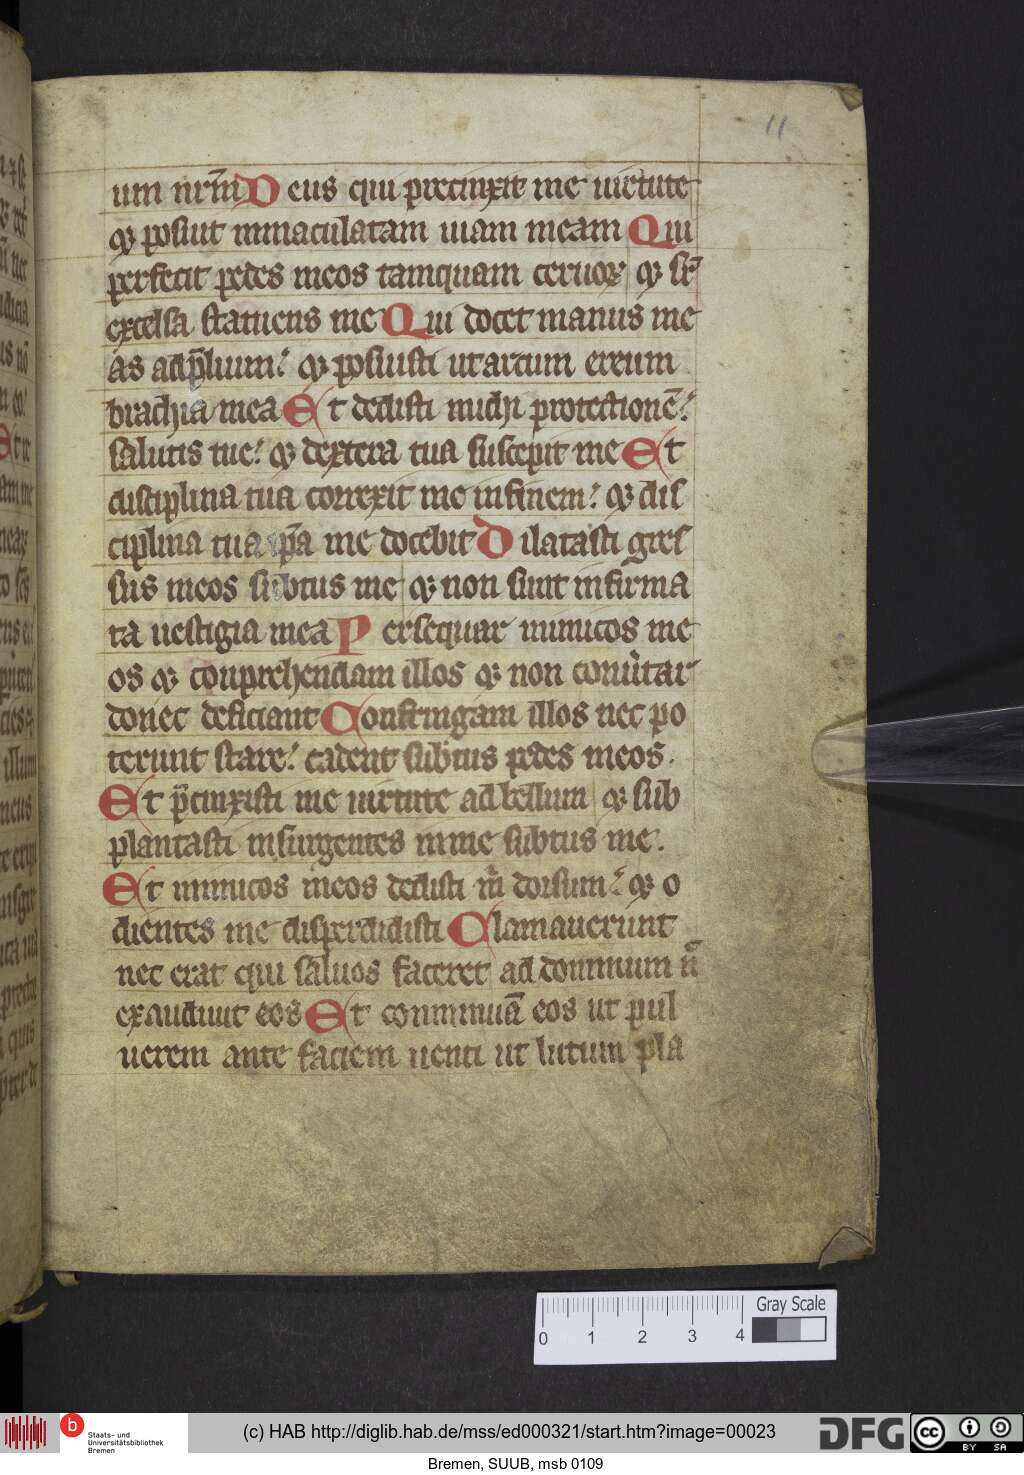 11
um nr̄m Deus qui precinxit me uirtute
⁊ posuit inmaculatam uiam meam Qui
perfecit pedes meos tamquam ceruoꝝ ⁊ sr̄
excelsa statuens me Qui docet manus me
as ad p̄lium: ⁊ posuisti ut arcum ereum
brachia mea Et dedisti michi protectionē:
salutis tue: ⁊ dextera tua suscepit me Et
disciplina tua correxit me in finem: ⁊ dis
ciplina tua ip̄a me docebit Dilatasti gres
sus meos subtus me ⁊ non sunt infirma
ta uestigia mea Persequar inimicos me
os ⁊ conprehendam illos ⁊ non conu̾tar
donec deficiant Confringam illos nec po
terunt stare: cadent subtus pedes meos.
Et p̄cinxisti me uirtute ad bellum ⁊ sub
plantasti insurgentes in me subtus me.
Et inimicos meos dedisti m̊ dorsum: ⁊ o
dientes me disperdidisti Clamauerunt
nec erat qui saluos faceret ad dominum n̄
exaudiuit eos Et conminuā eos ut pul
uerem ante faciem uenti ut lutum pla
0 1 2 3 4
Gray Scale
b
Staats- und
Universitätsbibliothek
Bremen
(c) HAB http://diglib.hab.de/mss/ed000321/start.htm?image=00023
DFG
cc BY SA
Bremen, SUUB, msb 0109